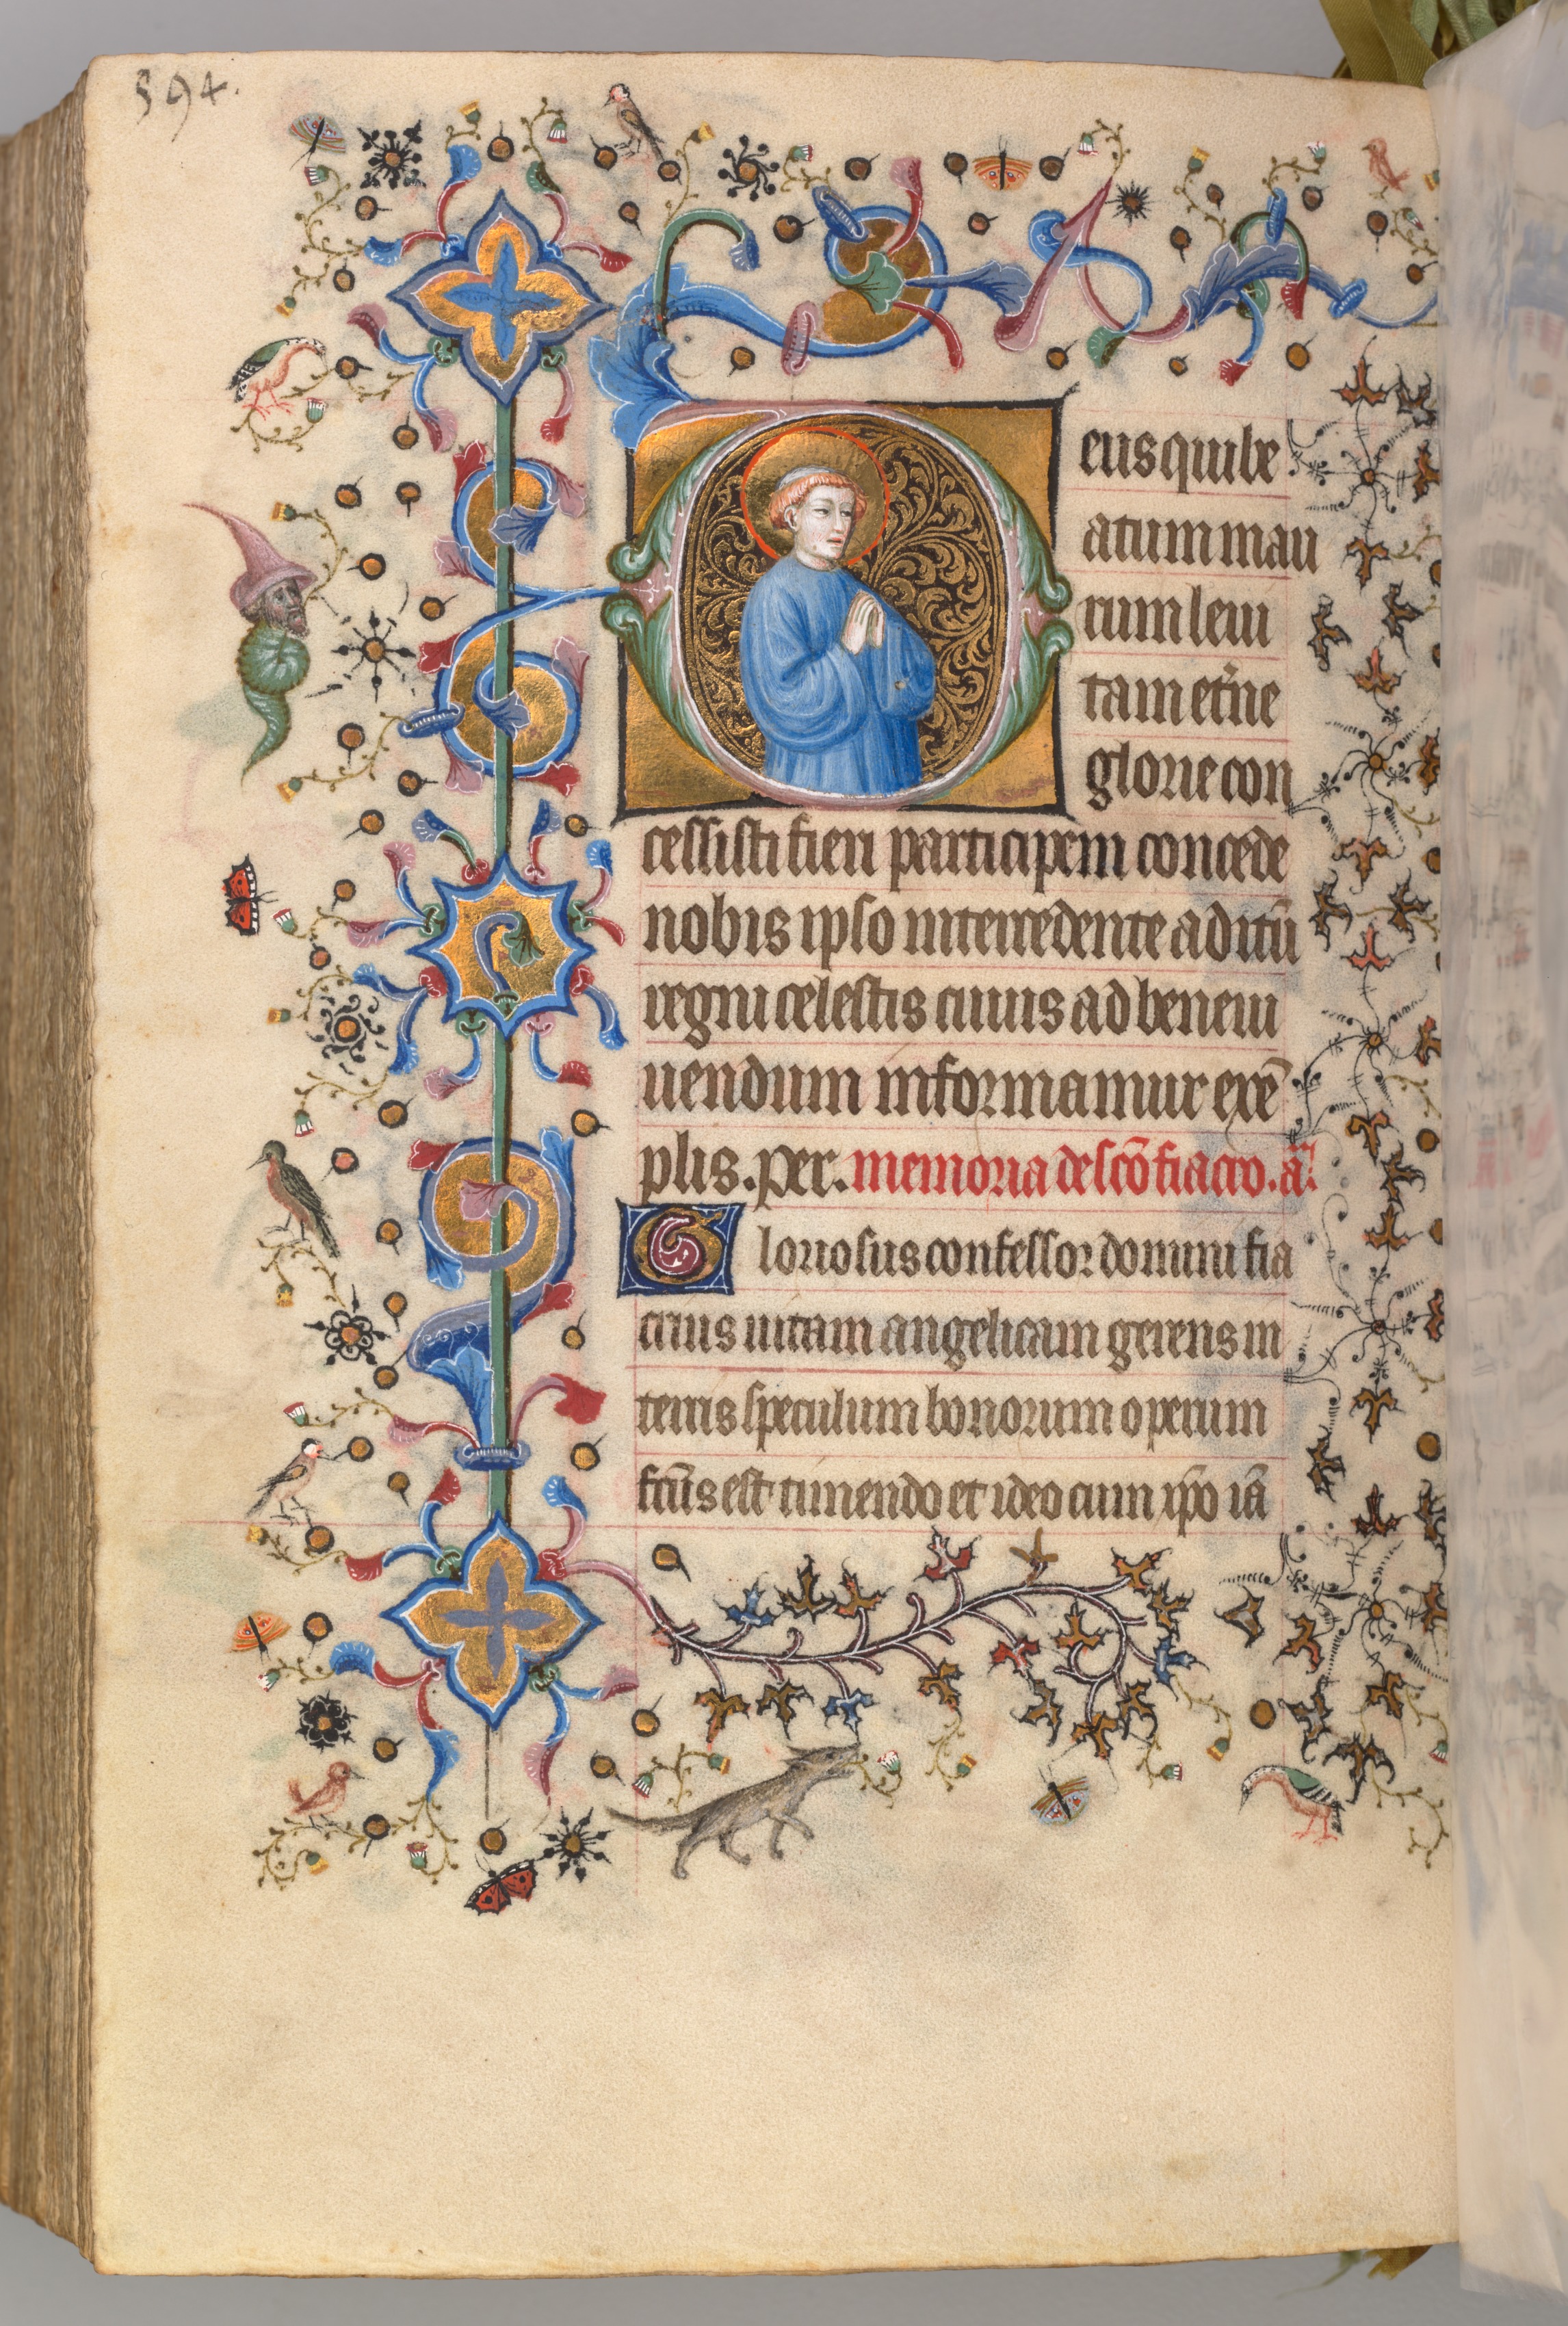 594.
Deus qui be
atum mau
rum leui
tam et'ne
glorie con
cessisti fieri participem concede
nobis ipso intercedente aditū
regni celestis cuius ad beneui
uendum informamur exē
plis. per. memoria de scō fiacro. ā.
Gloriosus confessor domini fia
crius uitam angelicam gerens in
terris speculum bonorum operum
fctūs est timendo et ideo cum xp̄o iā